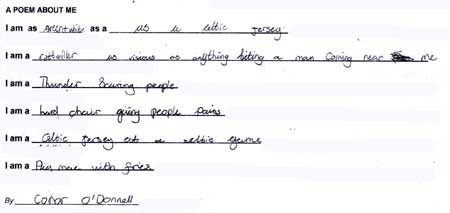 A POEM ABOUT ME
I am as as a us a celtic jersey
I am a rotwiller as vicious as anything biting a man Coming near me
I am a Thunder Scaring people
I am a hard chair giving people pains
I am a Celtic Jersey at a celtic game
I am a with fries
By Conor O'Donnell